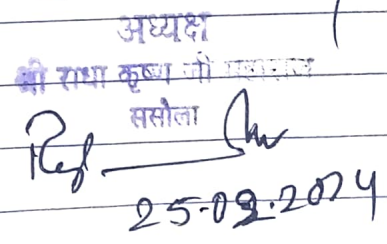 अध्यक्ष
श्री राधा कृष्ण जी महाराज
ससोला
25.09.2024